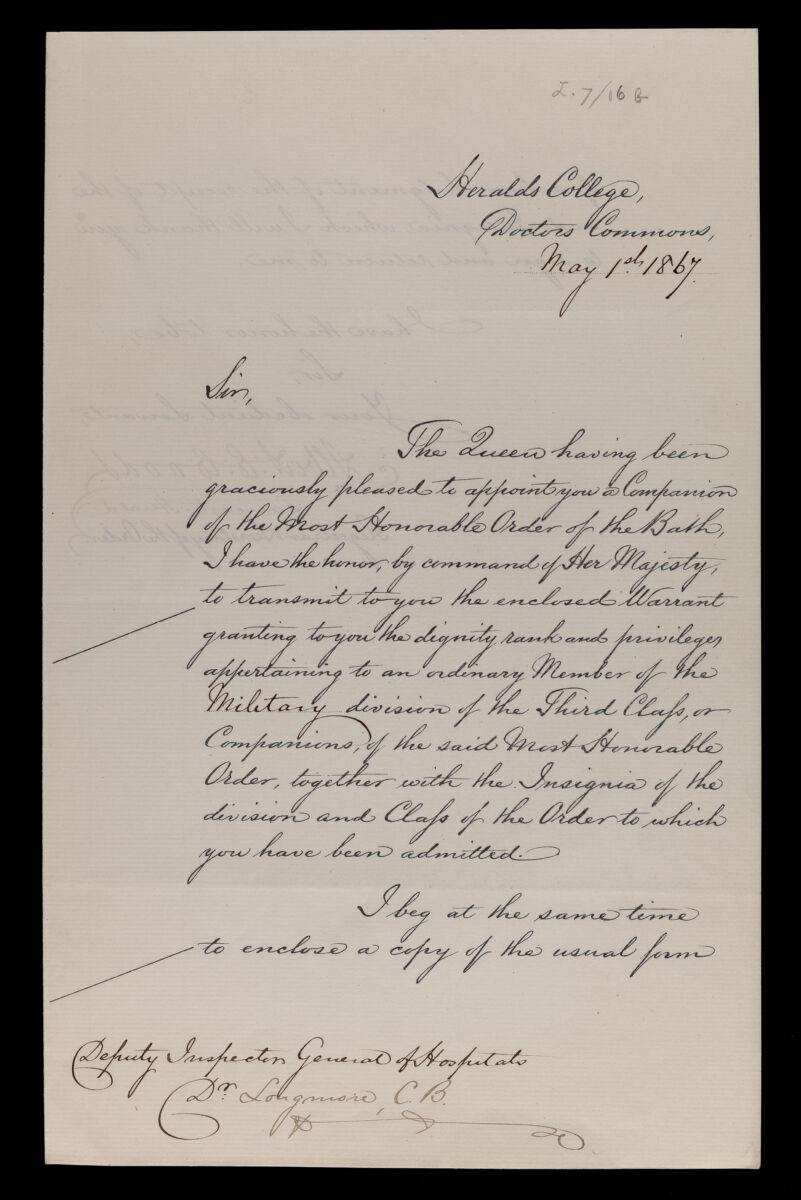 L. 7/16 B
Heralds College,
Doctors Commons,
May 1st 1867.
Sir,
The Queen having been
graciously pleased to appoint you a Companion
of the Most Honorable Order of the Bath,
I have the honor, by command of Her Majesty,
to transmit to you the enclosed Warrant
granting to you the dignity rank and privileges
appertaining to an ordinary Member of the
Military division of the Third Claſs, or
Companions, of the said Most Honorable
Order, together with the Insignia of the
division and Claſs of the Order to which
you have been admitted.
I beg at the same time
to enclose a copy of the usual form
Deputy Inspector General of Hospitals
Dr. Longmore, C.B.